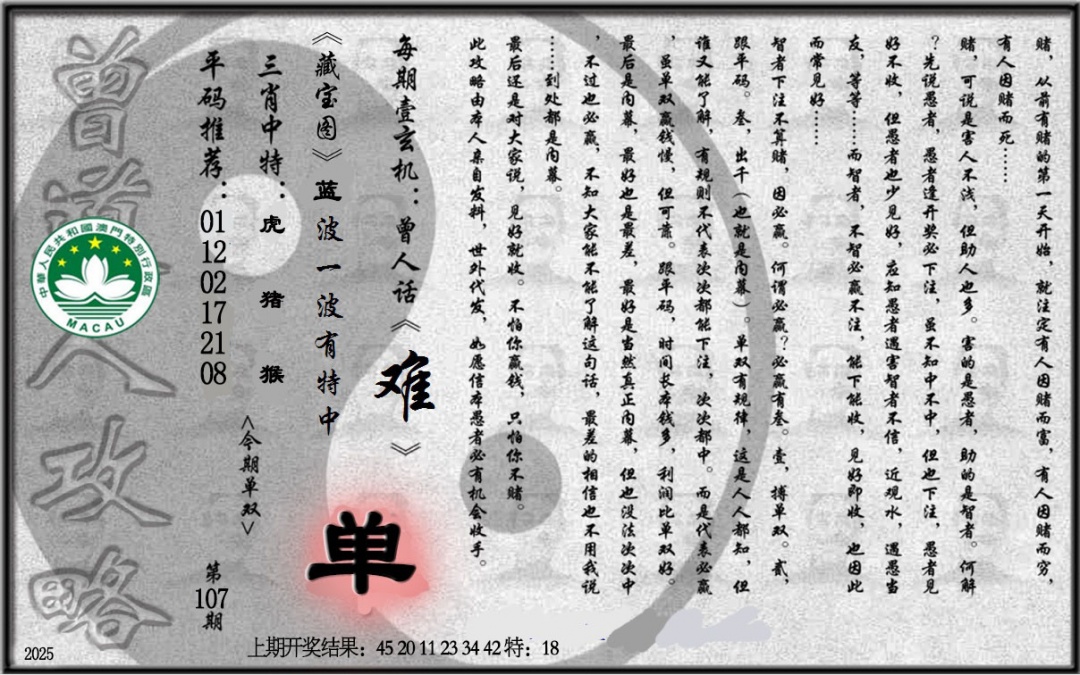 赌，从前有赌的第一天开始，就注定有人因赌而富，有人因赌而穷，
有人因赌而死……
赌，可说是害人不浅，但助人也多。害的是愚者，助的是智者。何解
？先说愚者，愚者逢开奖必下注，虽不知中不中，但也下注，愚者见
好不收，但愚者也少见好，应知愚者遇害智者不信，近观水，遇愚当
友，等等……而智者，不智必赢不注，能下能收，见好即收，也因此
而常见好……
智者下注不算赌，因必赢。何谓必赢？必赢有叁。壹，搏单双。贰，
跟平码。叁，出千（也就是内幕）。单双有规律，这是人人都知，但
谁又能了解，有规则不代表次次都能下注，次次都中。而是代表必赢
，虽单双赢钱慢，但可靠。跟平码，时间长本钱多，利润比单双好。
最后是内幕，最好也是最差，最好是当然真正内幕，但也没法次次中
，不过也必赢，不知大家能不能了解这句话，最差的相信也不用我说
……到处都是内幕。
最后还是对大家说，见好就收。不怕你赢钱，只怕你不赌。
此攻略由本人亲自发料，世外代发，如愿信本愚者必有机会收手。
每期壹玄机：曾人话《难》
《藏宝图》蓝波一波有特中
单
三肖中特：虎 猪 猴
<今期单双>
平码推荐：01 12 02 17 21 08
第107期
曾道人攻略
中華人民共和國澳門特別行政區
MACAU
2025
上期开奖结果：45 20 11 23 34 42 特：18